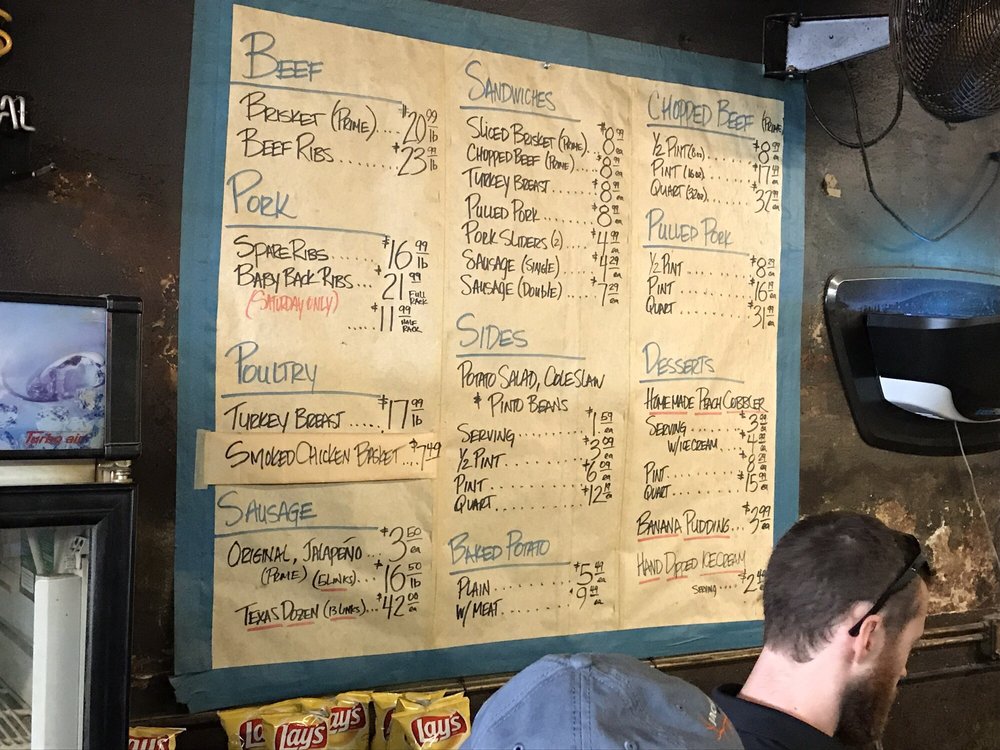 AL
Turbo air
BEEF
BRISKET (PRIME).... $20.99 lb
BEEF RIBS...... $23.99 lb
PORK
SPARE RIBS ....... $16.99 lb
BABY BACK RIBS... $21.99 FULL RACK
(SATURDAY ONLY)
.... $11.99 HALF RACK
POULTRY
TURKEY BREAST.... $17.99 lb
SMOKED CHICKEN BASKET... $7.49
SAUSAGE
ORIGINAL, JALAPEÑO... $3.50 ea
(PRIME) (5 LINKS) $16.50 lb
TEXAS DOZEN (13 LINKS)... $42.00 ea
SANDWICHES
SLICED BRISKET (PRIME) $8.99 ea
CHOPPED BEEF (PRIME)... $8.99 ea
TURKEY BREAST.... $8.99 ea
PULLED PORK..... $8.99 ea
PORK SLIDERS (2).... $4.99 ea
SAUSAGE (SINGLE).... $4.29 ea
SAUSAGE (DOUBLE)... $7.29 ea
SIDES
POTATO SALAD, COLESLAW
& PINTO BEANS
SERVING......... $1.59 ea
1/2 PINT......... $3.09 ea
PINT........... $6.09 ea
QUART.......... $12.19 ea
BAKED POTATO
PLAIN.......... $5.49 ea
W/ MEAT......... $9.49 ea
CHOPPED BEEF (PRIME)
1/2 PINT (8oz)...... $8.99 ea
PINT (16oz)..... $17.49 ea
QUART (32oz).... $32 ea
PULLED PORK
1/2 PINT........ $8.29 ea
PINT......... $16.19 ea
QUART........ $31.99 ea
DESSERTS
HOMEMADE PEACH COBBLER
SERVING......... $3 ea
W/ICECREAM... $4 ea
PINT........... $8.29 ea
QUART......... $15.99 ea
BANANA PUDDING... $3.99 ea
HAND DIPPED ICECREAM
SERVING.... $2
Lay's
Lay's
Lay's